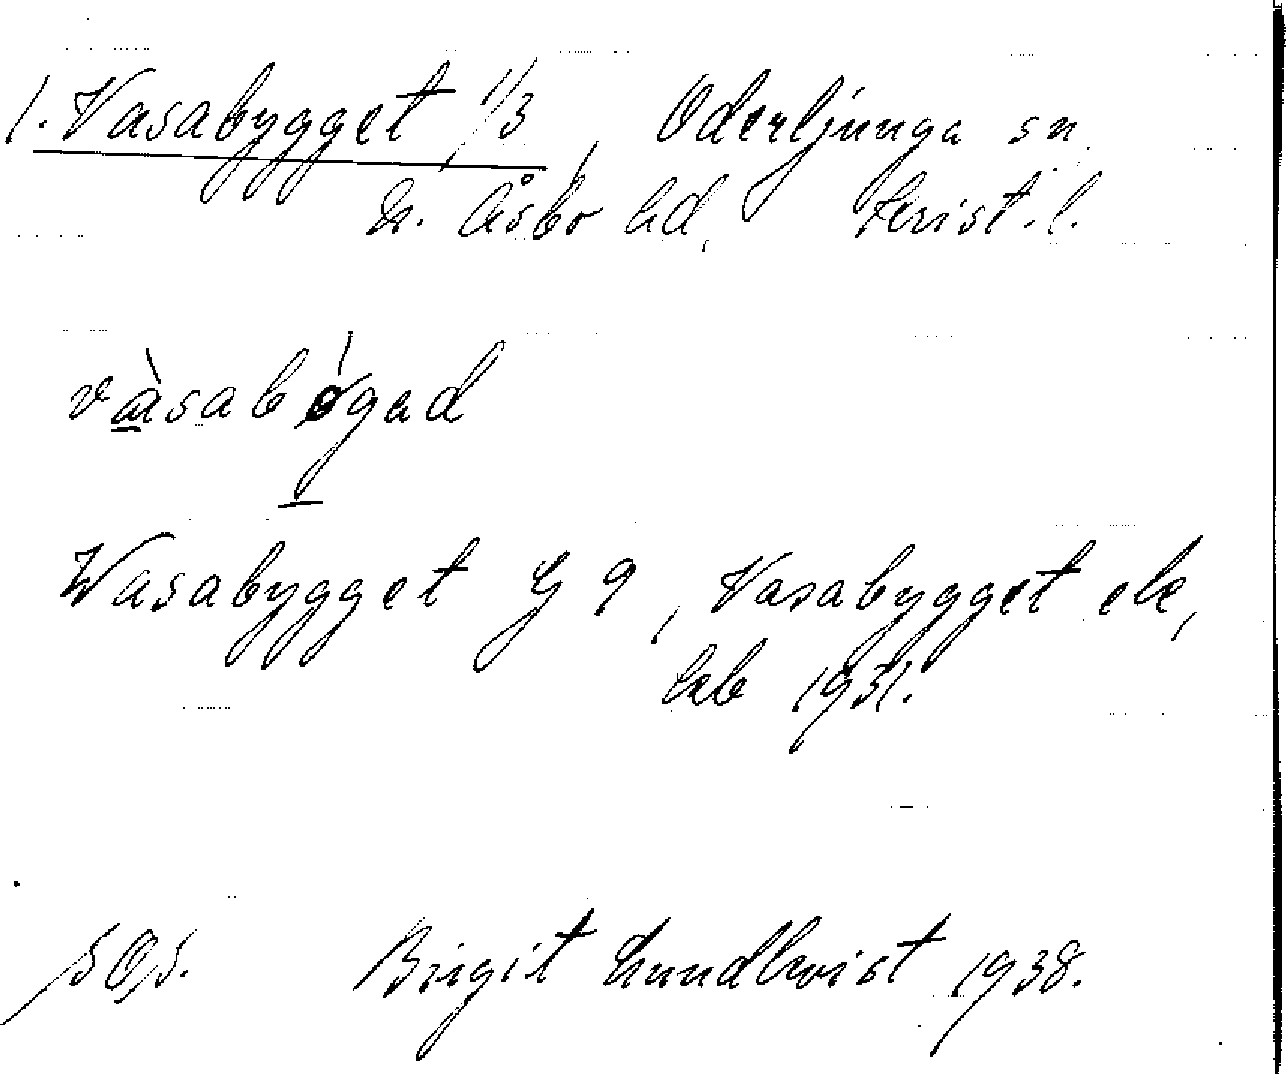 1. Vasabygget 1/3, Oderljunga sn.
N. Åsbo hd, Krist. l.
vàsabýgad
Wasabygget G 9, Vasabygget ek,
hab 1931.
SOS. Birgit Lundkvist 1938.